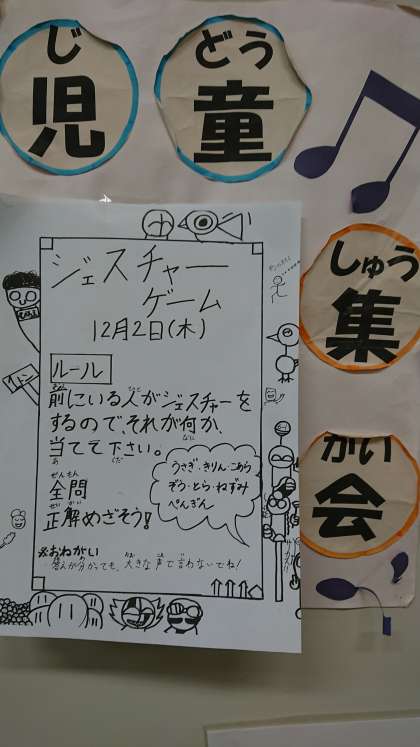 じ どう
児 童
しゅう
集
かい
会
ジェスチャー
ゲーム
12月2日(木)
ルール
前にいる人がジェスチャーを
するので、それが何か、
当てて下さい。
全問
正解めざそう!
うさぎ・きりん・こあら
ぞう・とら・ねずみ
ぺんぎん
※おねがい
答えが分かっても、大きな声で言わないでね!